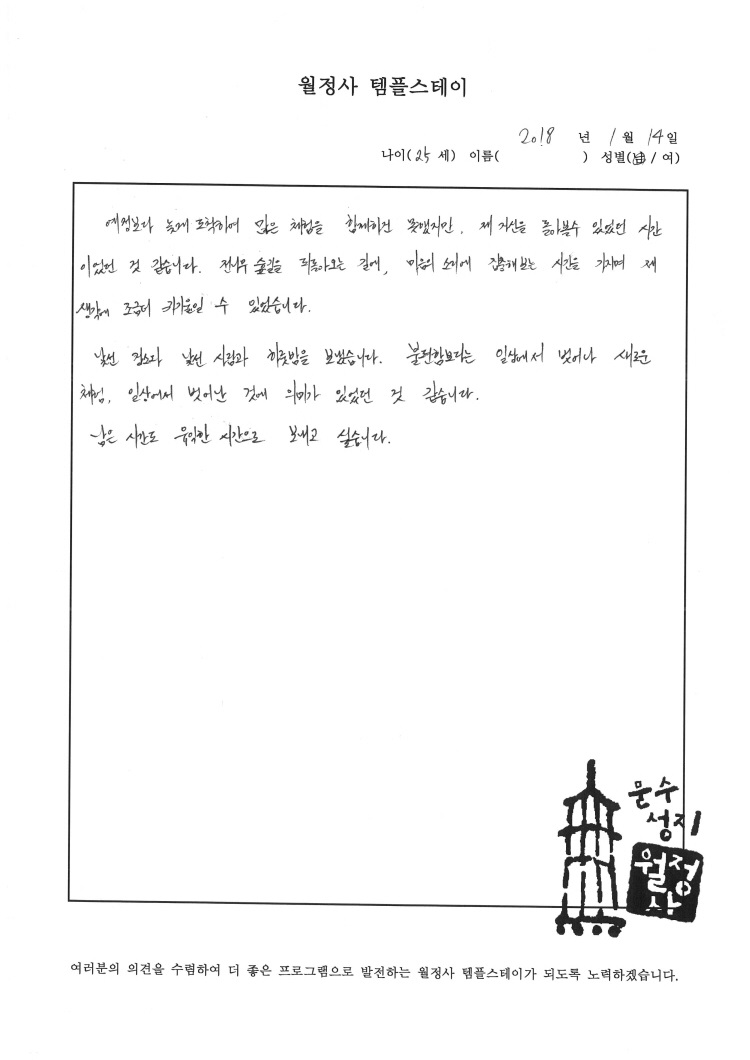 월정사 템플스테이
2018 년 1 월 14일
나이(25 세) 이름( ) 성별(남 / 여)
예정보다 늦게 도착하여 많은 체험을 함께하진 못했지만, 제 자신을 돌아볼수 있었던 시간
이었던 것 같습니다. 전나무 숲길을 되돌아오는 길에, 마음의 소리에 집중해보는 시간을 가지며 제
생각에 조금더 귀기울일 수 있었습니다.
낯선 장소와 낯선 사람과 하룻밤을 보냈습니다. 불편함보다는 일상에서 벗어나 새로운
체험, 일상에서 벗어난 것에 의미가 있었던 것 같습니다.
남은 시간도 유익한 시간으로 보내고 싶습니다.
문수
성지
월정
사
여러분의 의견을 수렴하여 더 좋은 프로그램으로 발전하는 월정사 템플스테이가 되도록 노력하겠습니다.